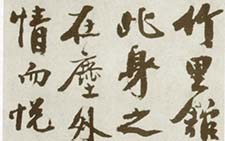 竹里館
此身之
在塵外
情而悦